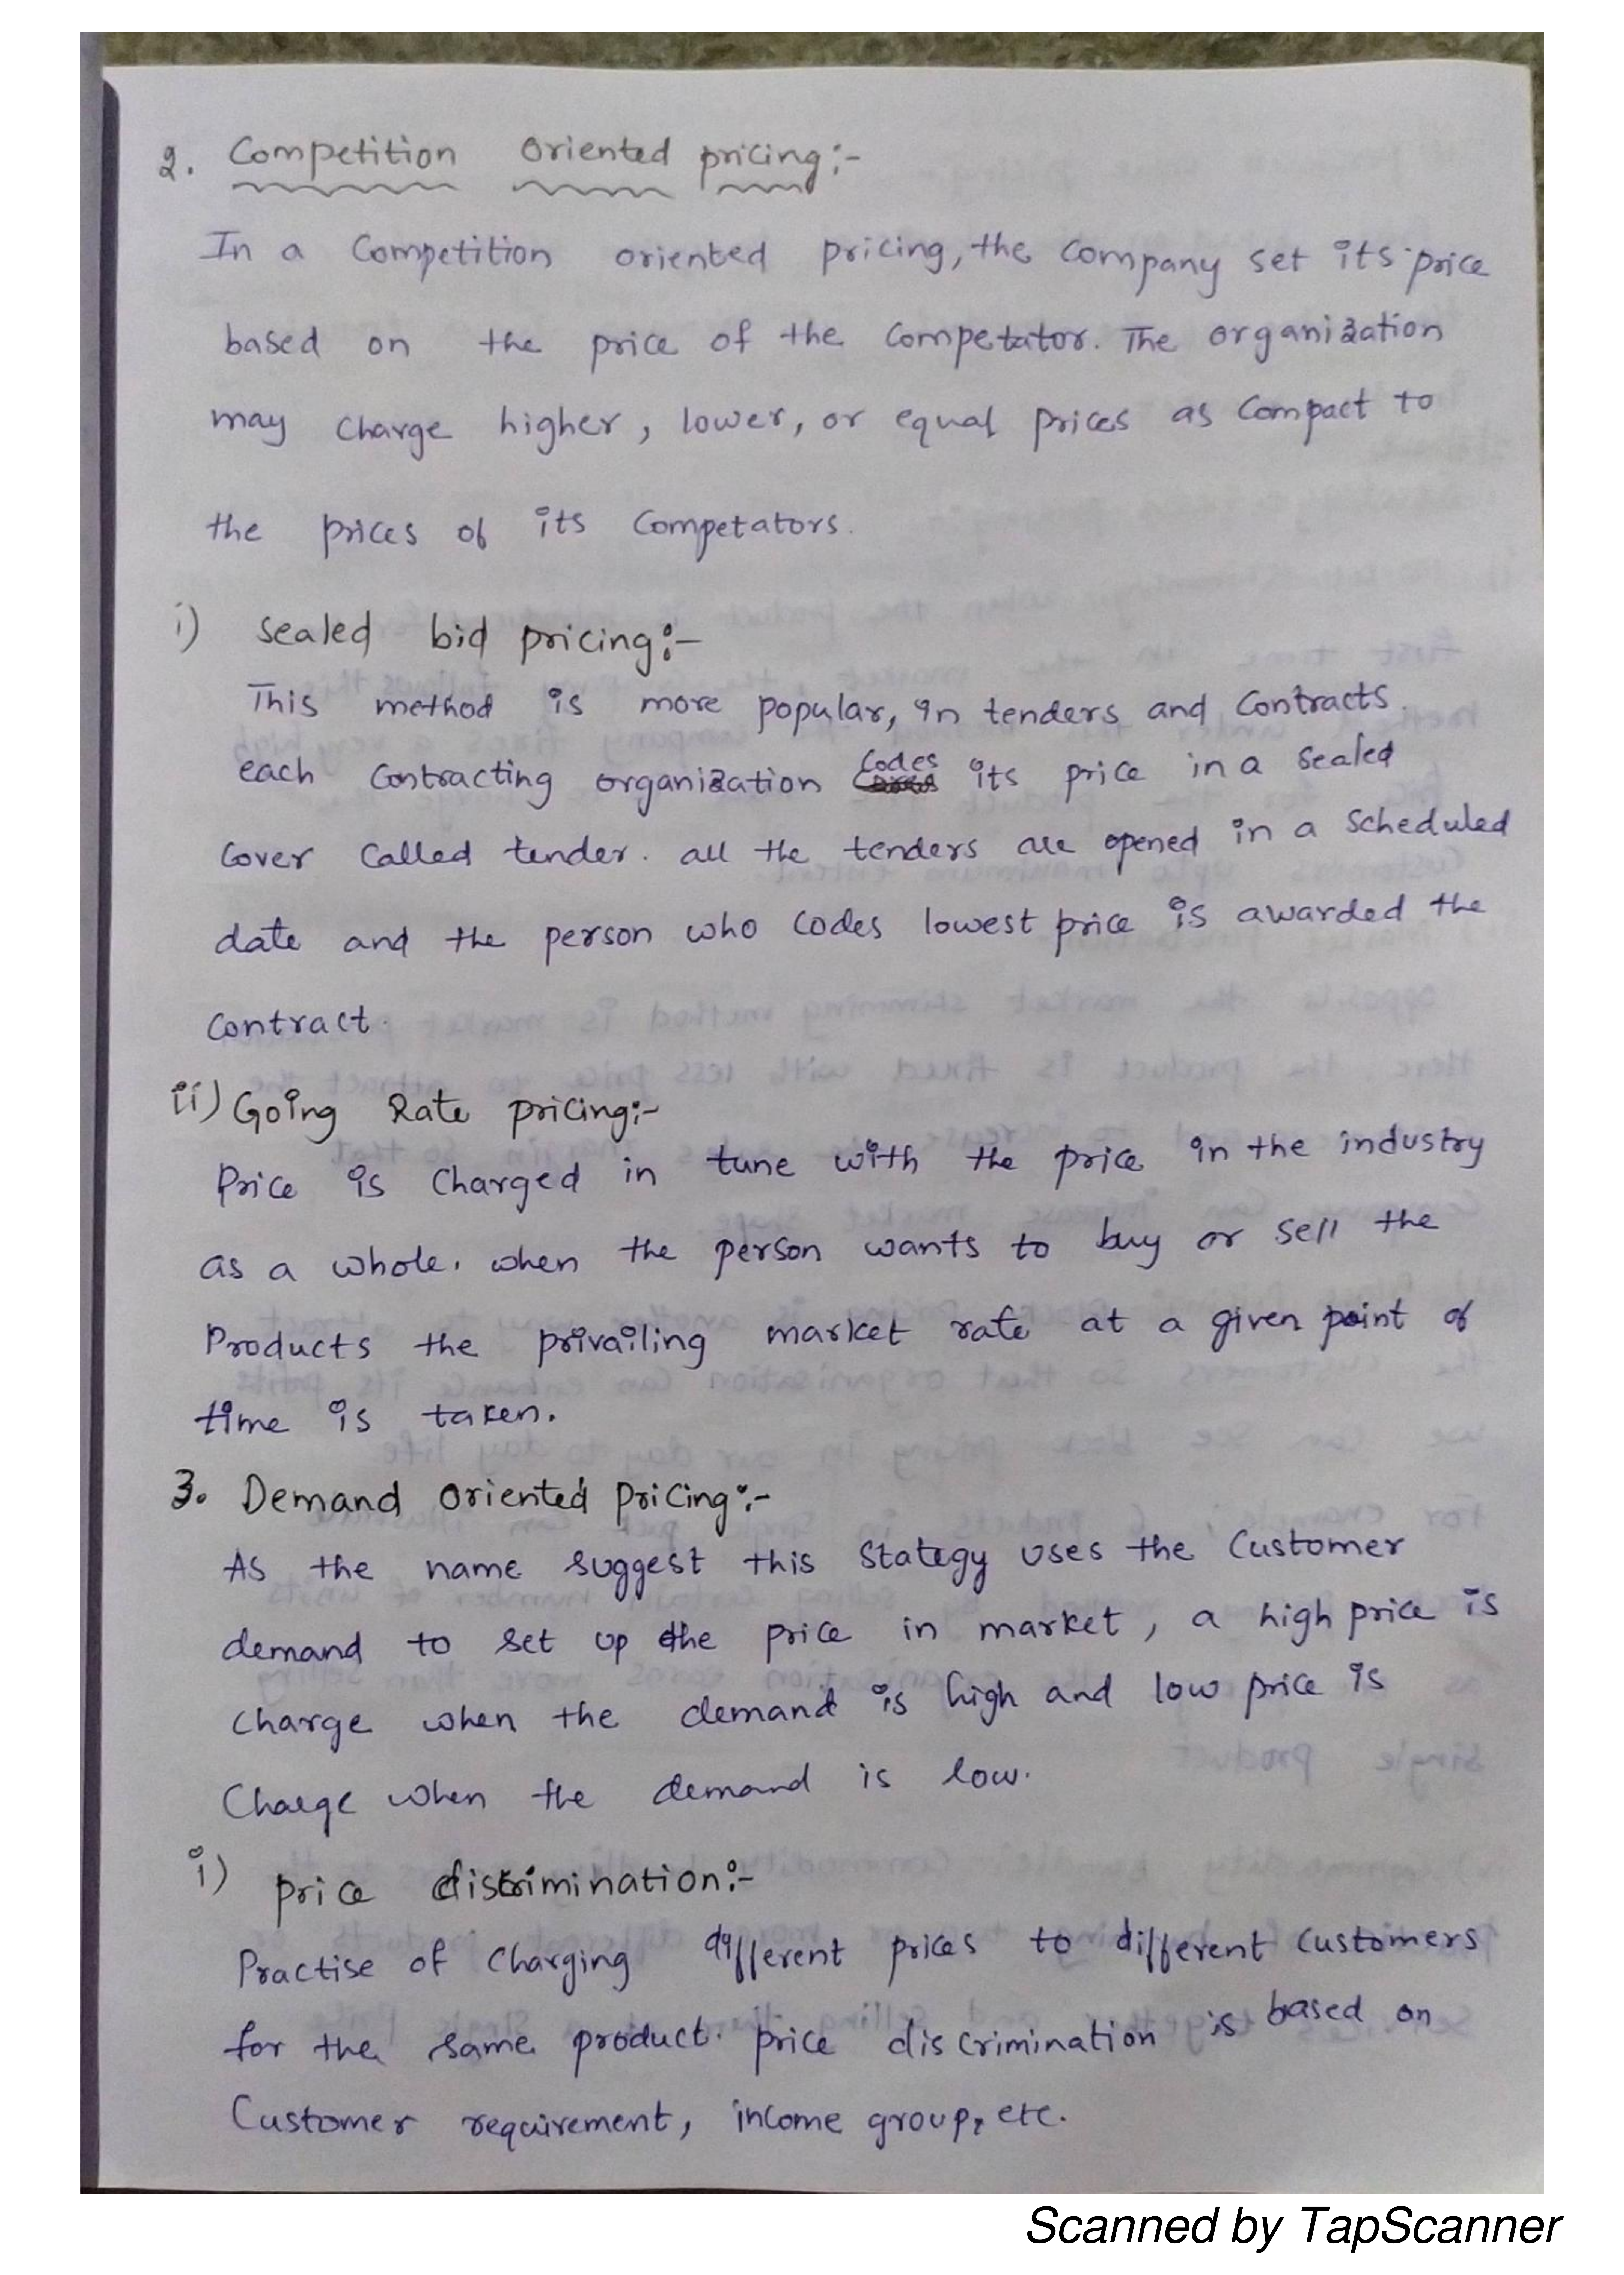 2. Competition Oriented pricing:-
In a Competition oriented pricing, the company set its price
based on the price of the Competator. The organization
may charge higher, lower, or equal prices as Compact to
the prices of its Competators.
i) Sealed bid pricing:-
This method is more popular, in tenders and Contracts.
each Contracting organization Codes its price in a Sealed
Cover Called tender. all the tenders are opened in a Scheduled
date and the person who Codes lowest price is awarded the
Contract.
ii) Going Rate pricing:-
Price is Charged in tune with the price in the industry
as a whole. when the person wants to buy or sell the
Products the privailing market rate at a given point of
time is taken.
3. Demand Oriented Pricing:-
As the name suggest this Stategy uses the Customer
demand to set up the price in market, a high price is
charge when the demand is high and low price is
Charge when the demand is low.
i) price discrimination:-
Practise of Charging different prices to different Customers
for the same product. price discrimination is based on
Customer requirement, income group, etc.
Scanned by TapScanner